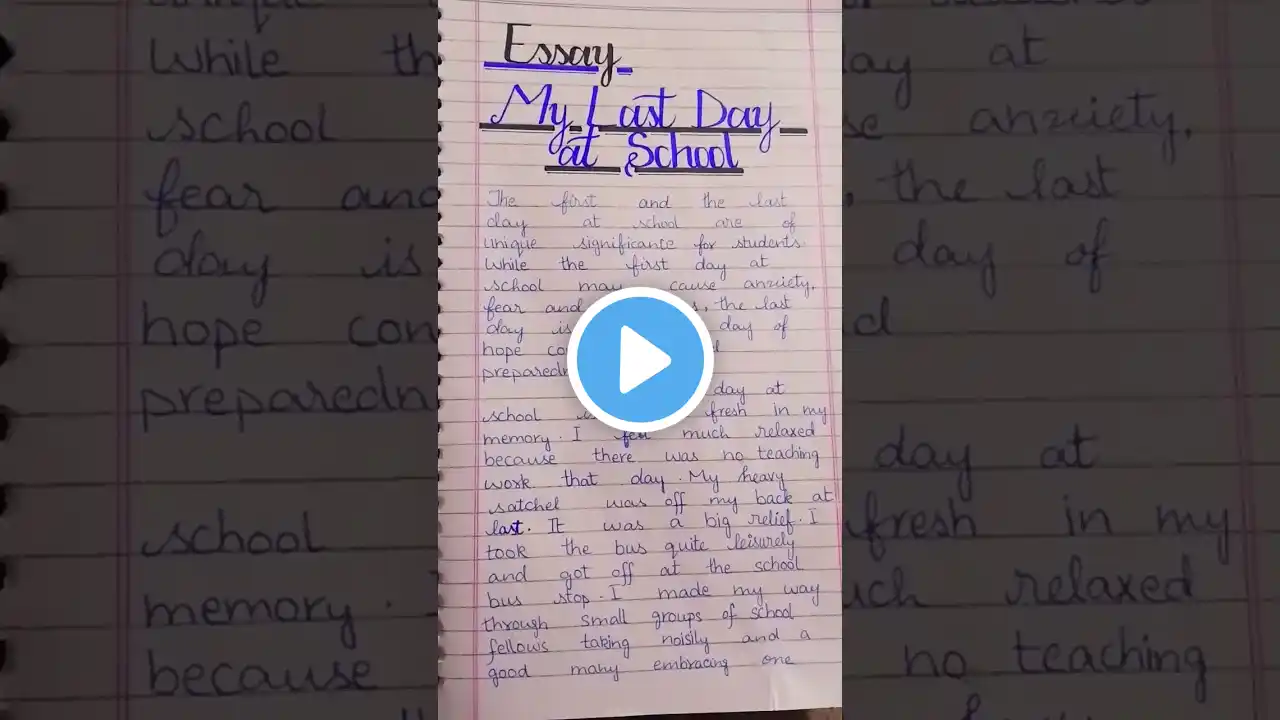 Essay
My Last Day
at School
The first and the last
day at school are of
unique significante for students.
While the first day at
school may cause anxiety,
fear and the last
day is day of
hope
day at
school fresh in my
memory. I much relaxed
because there was no teaching
work that day. My heavy
satchel was off my back at
last. It was a big relief. I
took the bus quite leisurely
and got off at the school
bus stop. I made my way
through small groups of school
fellows taking noisily and a
good many embracing one